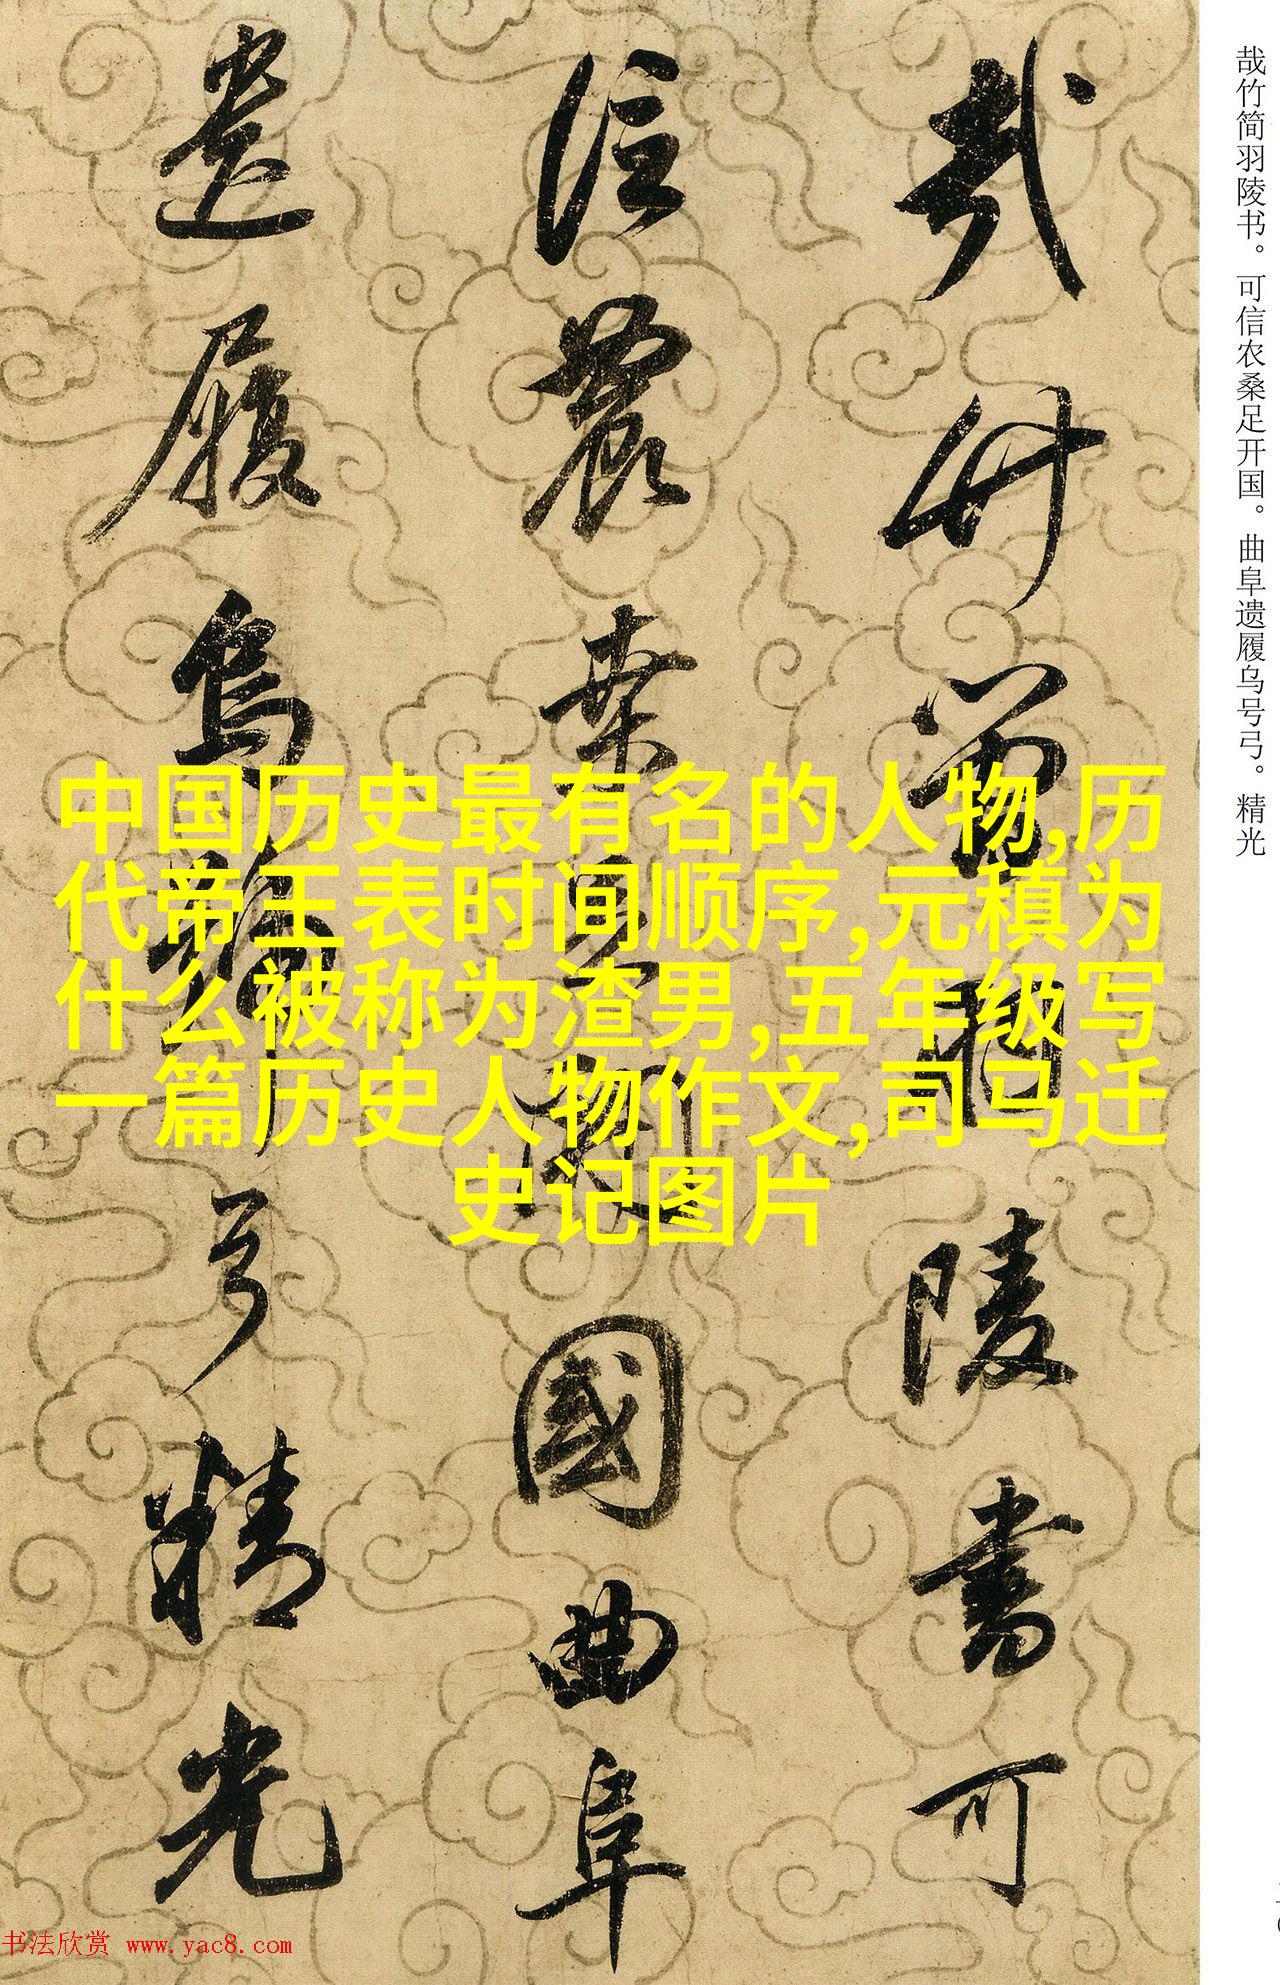 哉竹简羽陵书。可信农桑足开国。曲阜遗履乌号弓。精光
哉竹简羽陵書可
信農桑足開國曲阜
遺履烏號弓精光
中国历史最有名的人物,历
代帝王表时间顺序,元稹为
什么被称为渣男,五年级写
一篇历史人物作文,司马迁
史记图片
书法欣赏 www.yac8.com